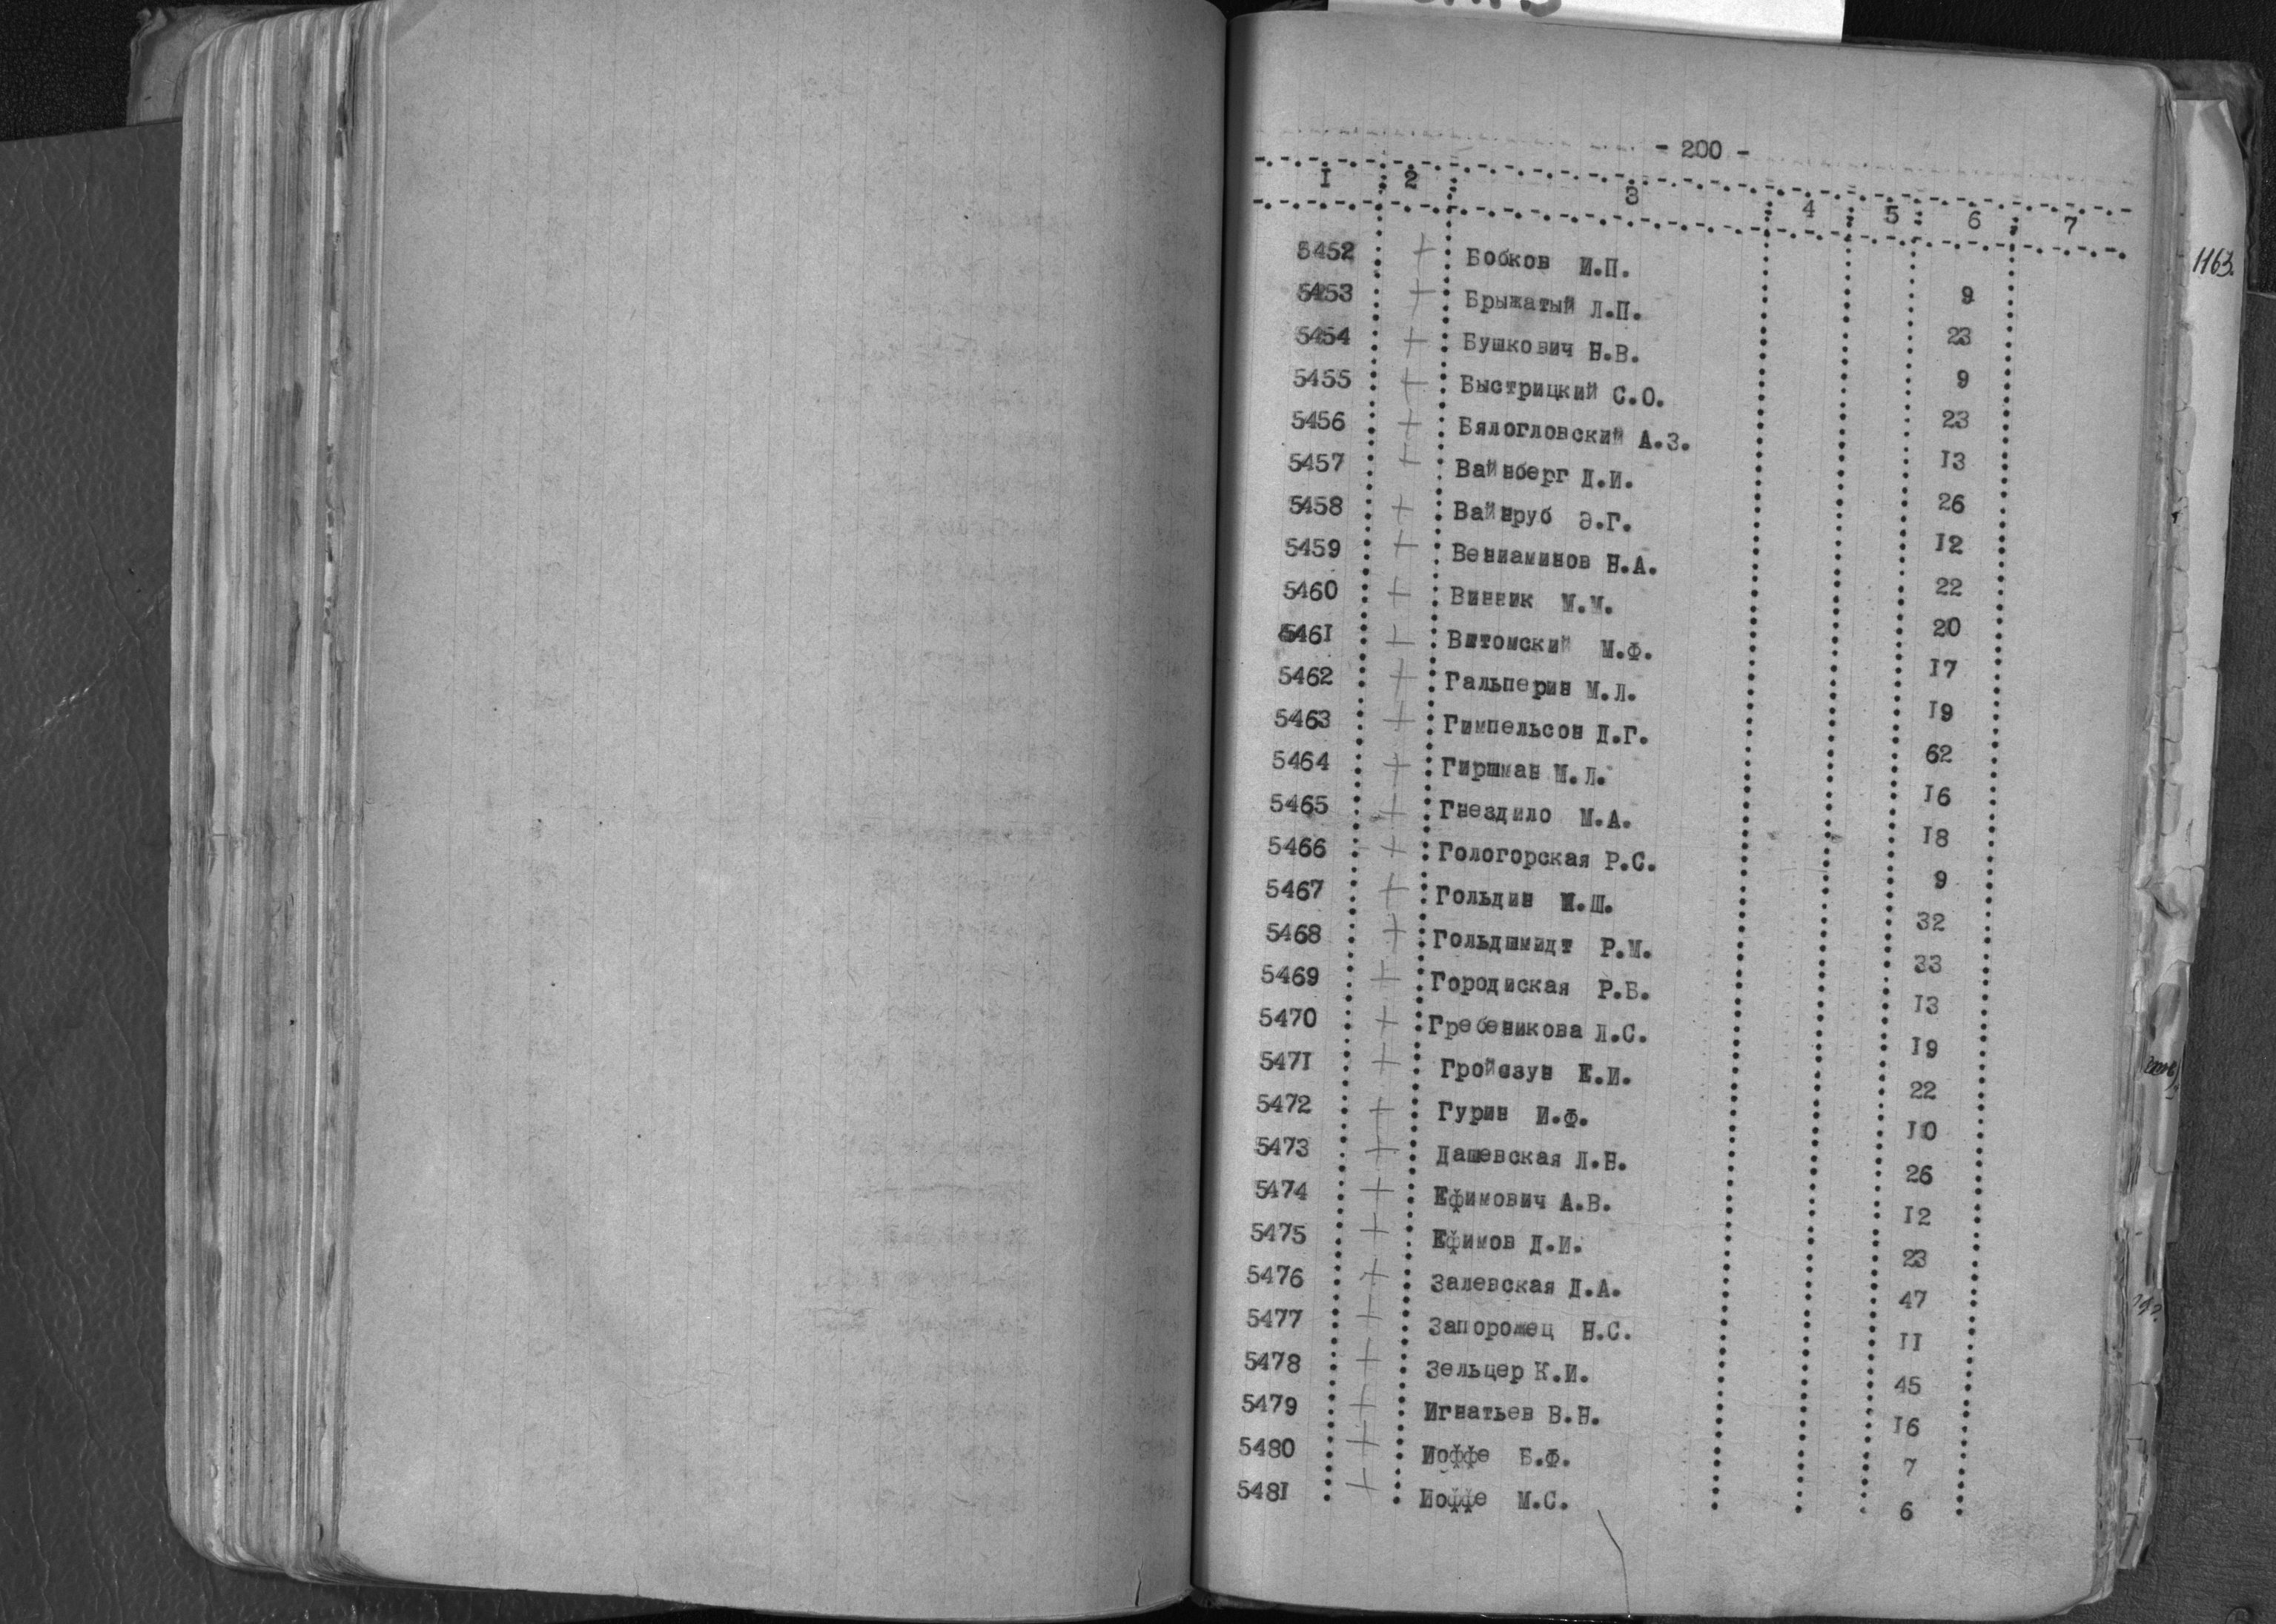 - 200 -
I : 2 : 3 : 4 : 5 : 6 : 7
1163.
5452 + Бобков И.П. 9
5453 + Брыжатый Л.П. 23
5454 + Бушкович Н.В. 9
5455 + Быстрицкий С.О. 23
5456 + Бялогловский А.З. I3
5457 + Вайнберг Д.И. 26
5458 + Вайнруб Э.Г. I2
5459 + Вениаминов Н.А. 22
5460 + Винник М.М. 20
546I + Витомский М.Ф. I7
5462 + Гальперин М.Л. I9
5463 + Гимпельсон Д.Г. 62
5464 + Гиршман М.Л. I6
5465 + Гнездило М.А. I8
5466 + Гологорская Р.С. 9
5467 + Гольдин И.Ш. 32
5468 + Гольдшмидт Р.М. 33
5469 + Городиская Р.Б. I3
5470 + Гребеникова Л.С. I9
547I + Гройсзун Е.И. 22
5472 + Гурин И.Ф. I0
5473 + Дашевская Л.Н. 26
5474 + Ефимович А.В. I2
5475 + Ефимов Д.И. 23
5476 + Залевская Д.А. 47
5477 + Запорожец Н.С. II
5478 + Зельцер К.И. 45
5479 + Игнатьев В.Н. I6
5480 + Иоффе Б.Ф. 7
548I + Иоффе М.С. 6